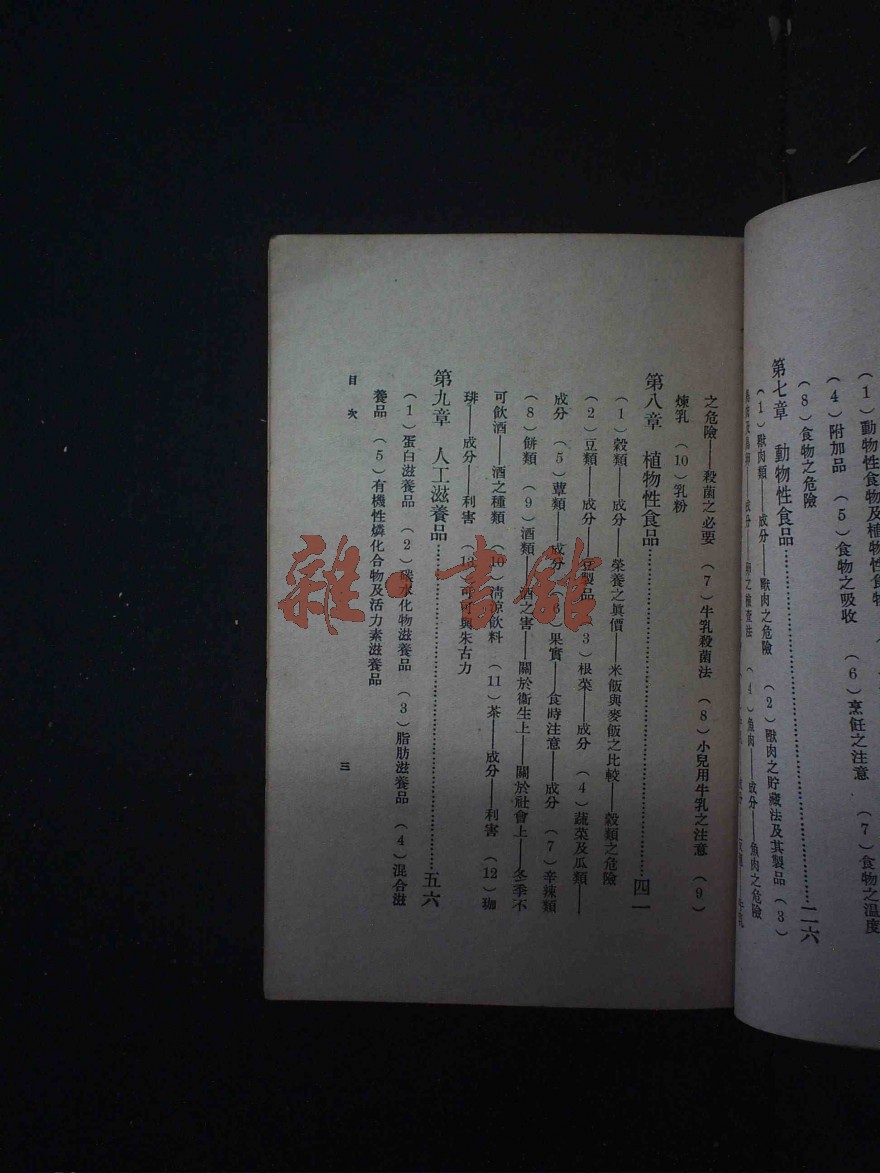 (1)動物性食物及植物性食物
(4)附加品 (5)食物之吸收 (6)烹飪之注意 (7)食物之溫度
(8)食物之危險
第七章 動物性食品…………二六
(1)獸肉類——成分——獸肉之危險 (2)獸肉之貯藏法及其製品 (3)
之檢查法 (4)魚肉——成分——魚肉之危險
之危險——殺菌之必要 (7)牛乳殺菌法 (8)小兒用牛乳之注意 (9)
煉乳 (10)乳粉
第八章 植物性食品…………四一
(1)穀類——成分——榮養之眞價——米飯與麥飯之比較——穀類之危險
(2)豆類——成分——豆製品 (3)根菜——成分 (4)蔬菜及瓜類——
成分 (5)蕈類——成分 (6)果實——食時注意——成分 (7)辛辣類
(8)餅類 (9)酒類——酒之害——關於衞生上——關於社會上——冬季不
可飲酒——酒之種類 (10)淸涼飲料 (11)茶——成分——利害 (12)珈
琲——成分——利害 (13)可可與朱古力
第九章 人工滋養品…………五六
(1)蛋白滋養品 (2)碳水化物滋養品 (3)脂肪滋養品 (4)混合滋
養品 (5)有機性燐化合物及活力素滋養品
目次
三
雜·書館